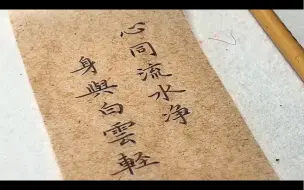 心同流水净
身與白雲軽